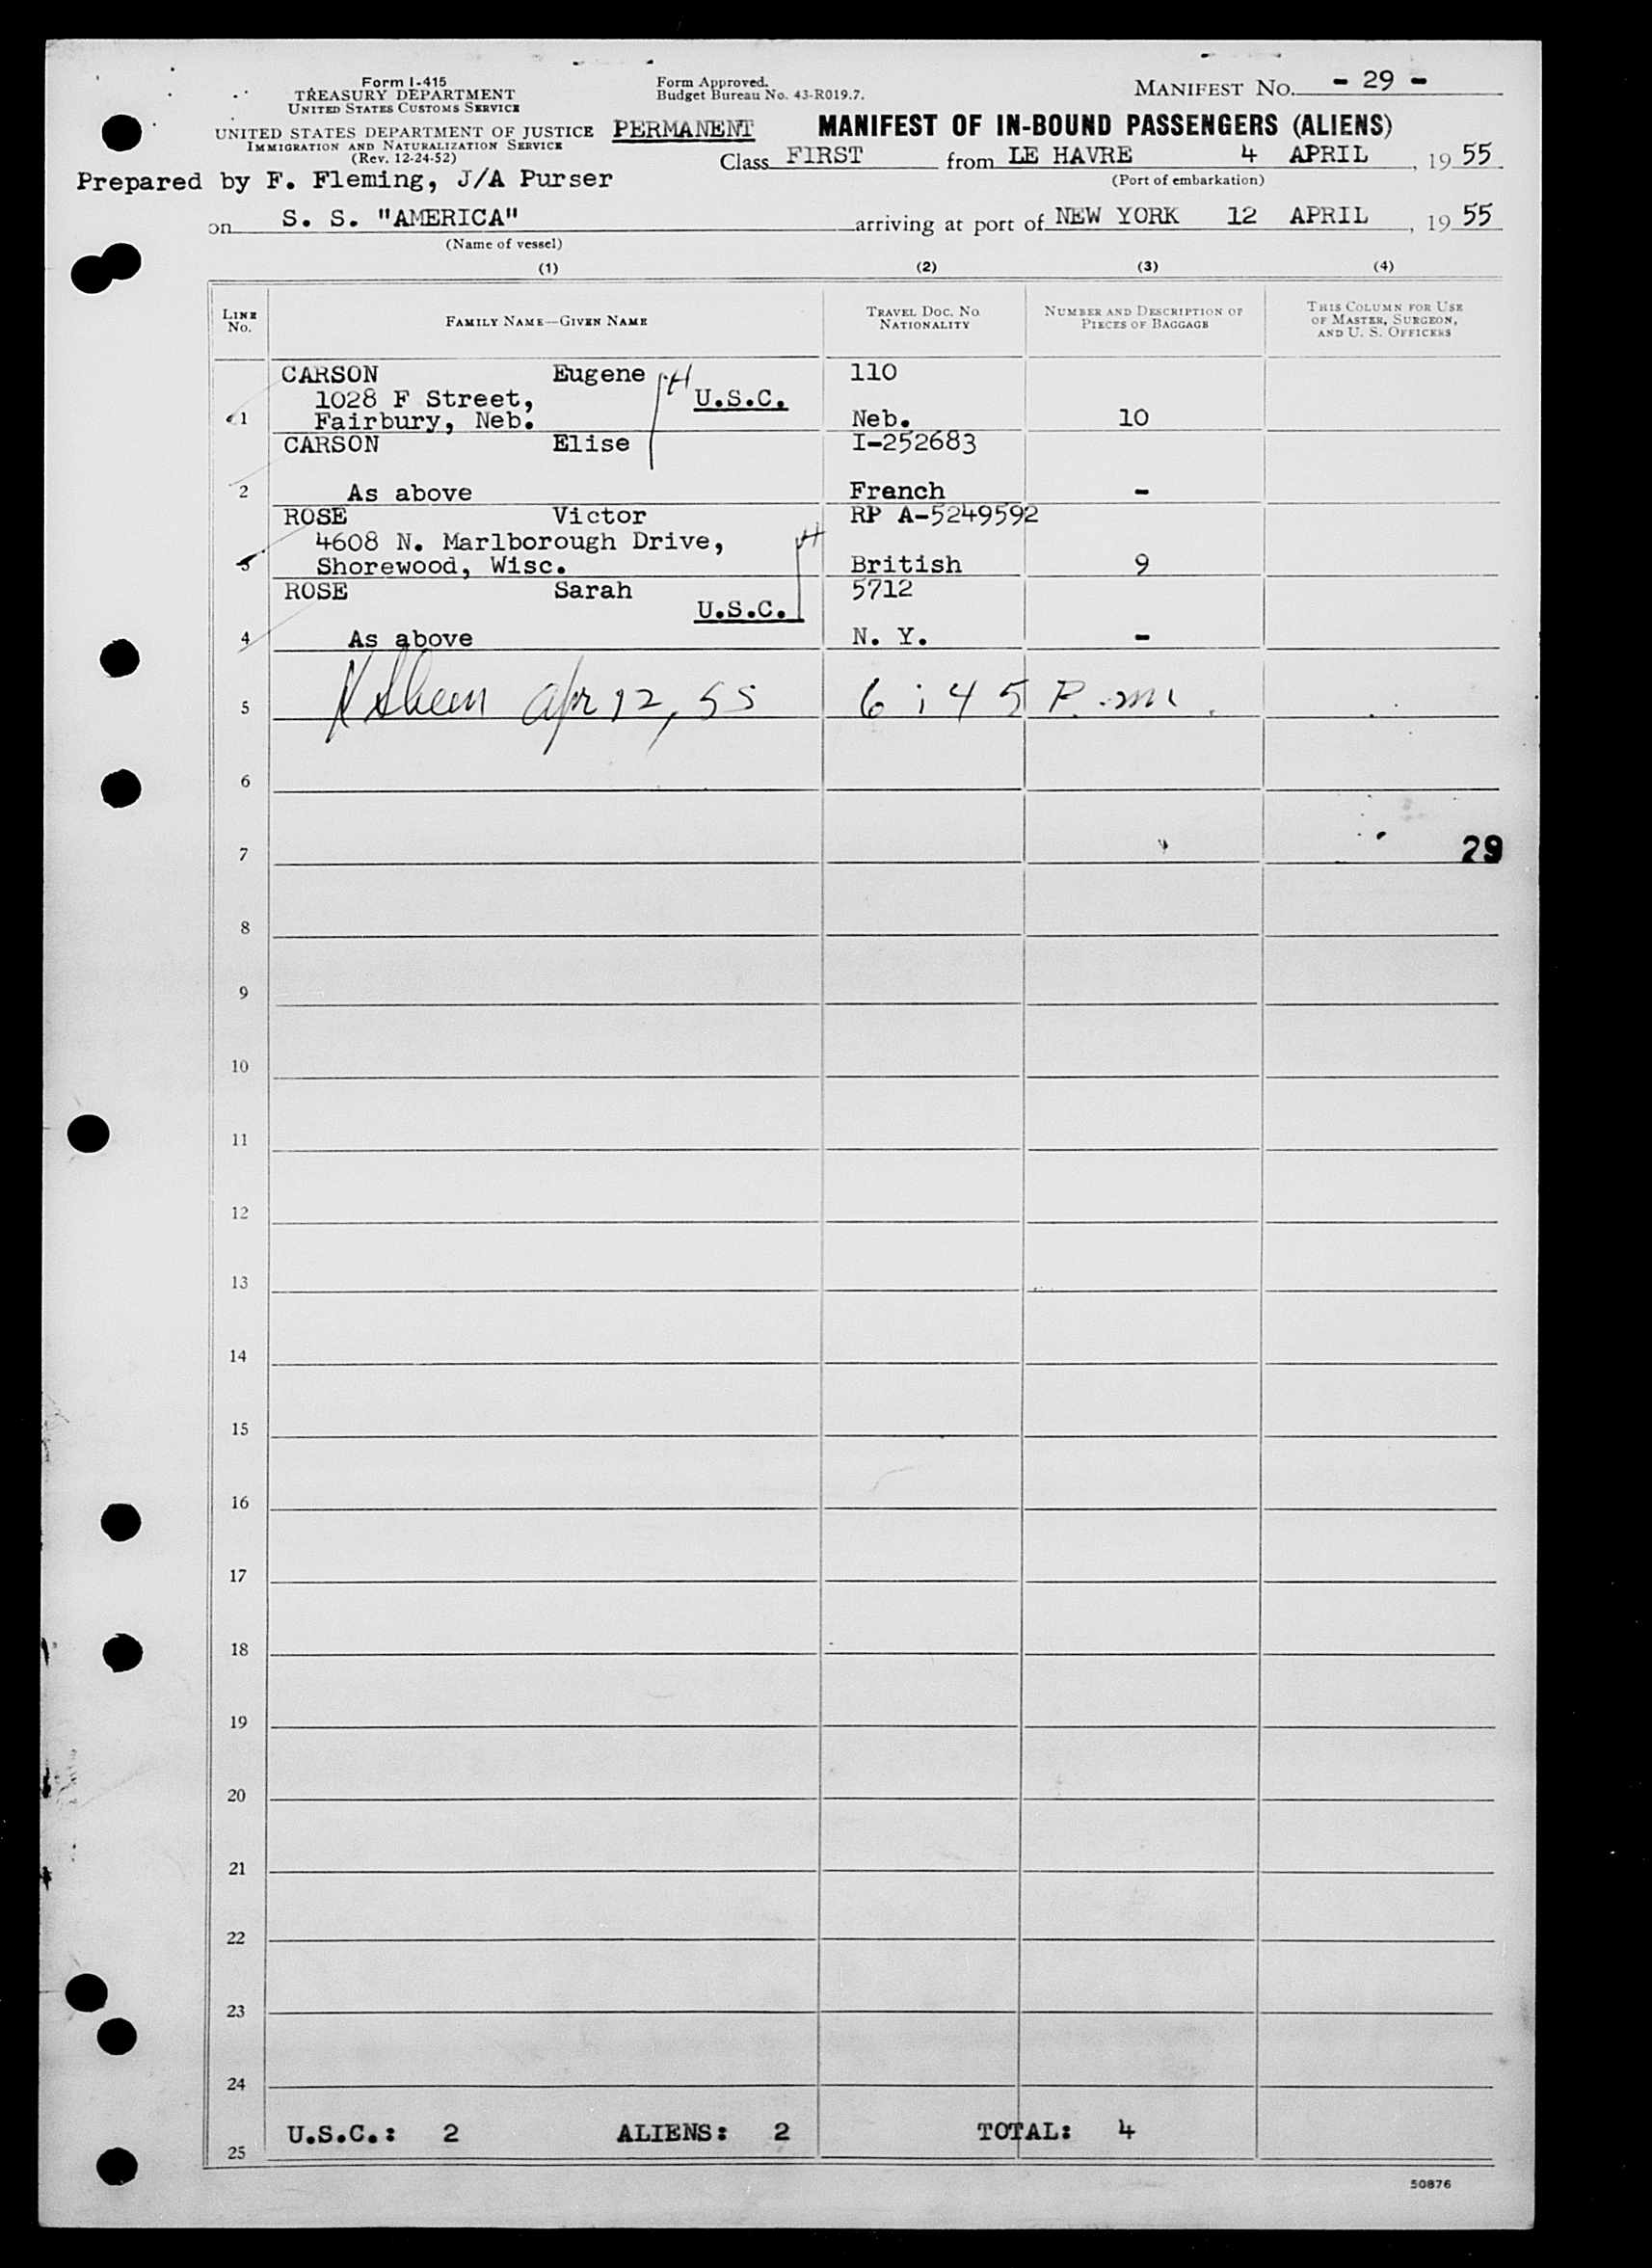 Form I-415
TREASURY DEPARTMENT
UNITED STATES CUSTOMS SERVICE
UNITED STATES DEPARTMENT OF JUSTICE
IMMIGRATION AND NATURALIZATION SERVICE
(Rev. 12-24-52)
Form Approved.
Budget Bureau No. 43-R019.7.
MANIFEST NO. - 29 -
PERMANENT MANIFEST OF IN-BOUND PASSENGERS (ALIENS)
Class FIRST from LE HAVRE 4 APRIL, 19 55
(Port of embarkation)
Prepared by F. Fleming, J/A Purser
on S. S. "AMERICA" arriving at port of NEW YORK 12 APRIL, 19 55
(Name of vessel)
(1) (2) (3) (4)
LINE No. FAMILY NAME—GIVEN NAME TRAVEL DOC. NO. NATIONALITY NUMBER AND DESCRIPTION OF PIECES OF BAGGAGE THIS COLUMN FOR USE OF MASTER, SURGEON, AND U. S. OFFICERS
CARSON Eugene 110
1028 F Street, U.S.C.
1 Fairbury, Neb. Neb. 10
CARSON Elise I-252683
2 As above French -
ROSE Victor RP A-5249592
4608 N. Marlborough Drive,
3 Shorewood, Wisc. British 9
ROSE Sarah 5712
U.S.C.
4 As above N. Y. -
5 Apr 12, 55 6:45 P.m.
6
7 29
8
9
10
11
12
13
14
15
16
17
18
19
20
21
22
23
24
U.S.C.: 2 ALIENS: 2 TOTAL: 4
25
50876